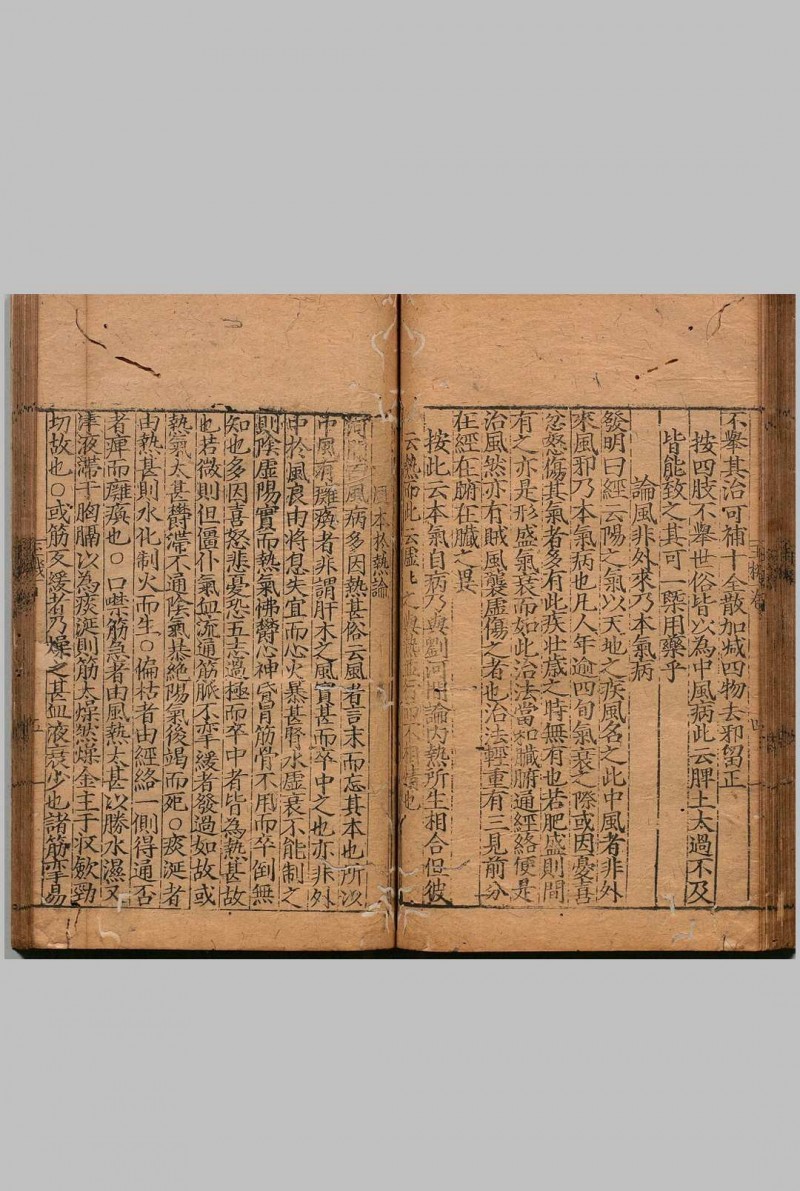 不舉其治可補十全散加减四物去邪留正
按四肢不舉世俗皆以為中風病此云脾土太過不及
皆能致之其可一槩用藥乎
論風非外來乃本氣病
發明曰經云陽之氣以天地之疾風名之此中風者非外
來風邪乃本氣病也凡人年逾四旬氣衰之際或因憂喜
忿怒傷其氣者多有此疾壮歲之時無有也若肥盛則間
有之亦是形盛氣衰而如此治法當和臟腑通經絡便是
治風然亦有賊風襲虛傷之者也治法輕重有三見前分
在經在腑在臟之異
按此云本氣自病乃與劉河間論内熱所生相合但彼
云熱而此云虛
也
風本於熱論
風病多因熱甚俗云風者言末而忘其本也所以
中風有癱瘓者非謂肝木之風實甚而卒中之也亦非外
中於風良由將息失宜而心火暴甚腎水虛衰不能制之
則陰虛陽實而熱氣怫鬱心神昏冒筋骨不用而卒倒無
知也多因喜怒悲憂恐五志過極而卒中者皆為熱甚故
也若微則但僵仆氣血流通筋脈不攣緩者發過如故或
熱氣太甚鬱滯不通陰氣暴絶陽氣後竭而死○痰涎者
由熱甚則水化制火而生○偏枯者由經絡一側得通否
者痺而癱瘓也○口噤筋急者由風熱太甚以勝水濕又
津液滯于胸膈以為痰涎則筋太燥然燥金主于收歛勁
切故也○或筋反緩者乃燥之甚血液衰少也諸筋攣易